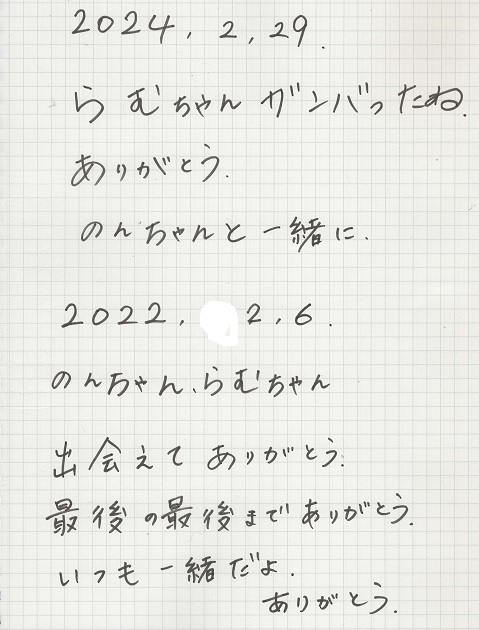 2024.2.29.
らむちゃん ガンバったね.
ありがとう.
のんちゃんと一緒に.
2022. 2.6.
のんちゃん、らむちゃん
出会えてありがとう.
最後の最後までありがとう.
いつも一緒だよ.
ありがとう.